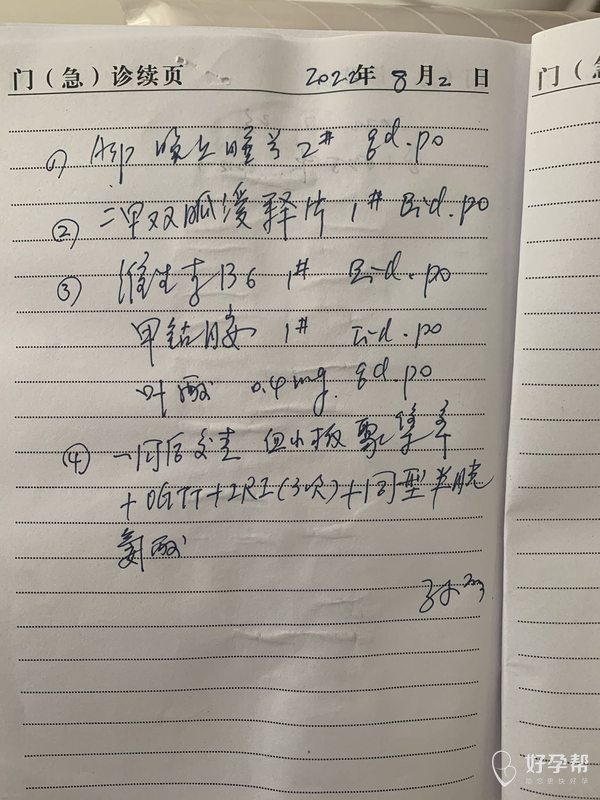 门（急）诊续页 2022年 8月2日
① Asp 晚上睡前 2# qd.po
② 二甲双胍缓释片 1# Bid.po
③ 维生素B6 1# Bid.po
甲钴胺 1# Tid.po
叶酸 0.4mg. qd.po
④ 后复查 血小板聚集率
+OGTT+IRI(3次)+同型半胱
氨酸
门（急
好孕帮
助您更快好孕